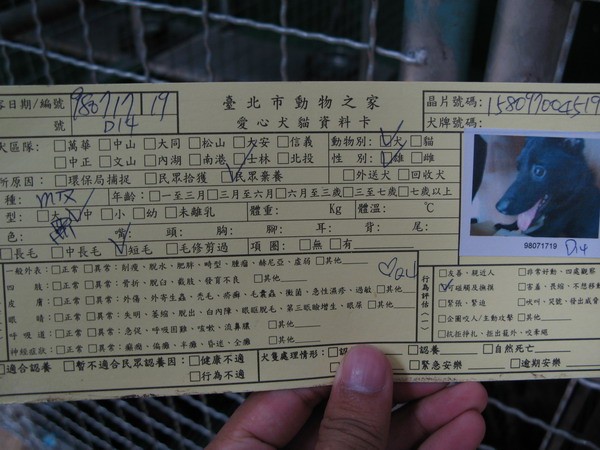 容日期/編號 980717 19 臺北市動物之家 晶片號碼: 158097004519
號 D14 愛心犬貓資料卡 犬牌號碼:
犬區隊: □萬華 □中山 □大同 □松山 □大安 □信義 動物別: □犬 □貓
□中正 □文山 □內湖 □南港 □士林 □北投 性別: □雄 □雌
所原因: □環保局捕捉 □民眾拾獲 □民眾棄養 □外送犬 □回收犬
種: MIX 年齡: □一至三月 □三月至六月 □六月至三歲 □三至七歲 □七歲以上
型: □大 □中 □小 □幼 □未離乳 體重: Kg 體溫: ℃
色: 背: 頭: 胸: 腳: 耳: 尾:
□長毛 □中長毛 □短毛 □毛修剪過 項圈: □無 □有
98071719 D14
一般外表: □正常 □異常: 削瘦、脫水、肥胖、畸型、腫瘤、赫尼亞、虛弱 □其他
四肢: □正常 □異常: 骨折、脫臼、截肢、發育不良 □其他
皮膚: □正常 □異常: 外傷、外寄生蟲、禿毛、疥癬、毛囊蟲、黴菌、急性濕疹、過敏 □其他
眼睛: □正常 □異常: 失明、萎縮、脫出、白內障、眼瞼脫毛、第三眼瞼增生、眼屎 □其他
呼吸道: □正常 □異常: 急促、呼吸困難、咳嗽、流鼻膿 □其他
神經症狀: □正常 □異常: 癲癇、偏癱、半癱、昏迷、全癱 □其他
行為評估(一)
□友善、親近人 □非常好動、四處觀察
□可碰觸及撫摸 □害羞、畏縮、不想移動
□緊張、緊迫 □吠叫、哭號、發出威
□企圖咬人/主動攻擊 □其他
□抗拒掙扎、拒出籠外、咬牽繩
適合認養 □暫不適合民眾認養因: □健康不適 犬隻處理情形: □認 □認養 □自然死亡
□行為不適 □緊急安樂 □逾期安樂